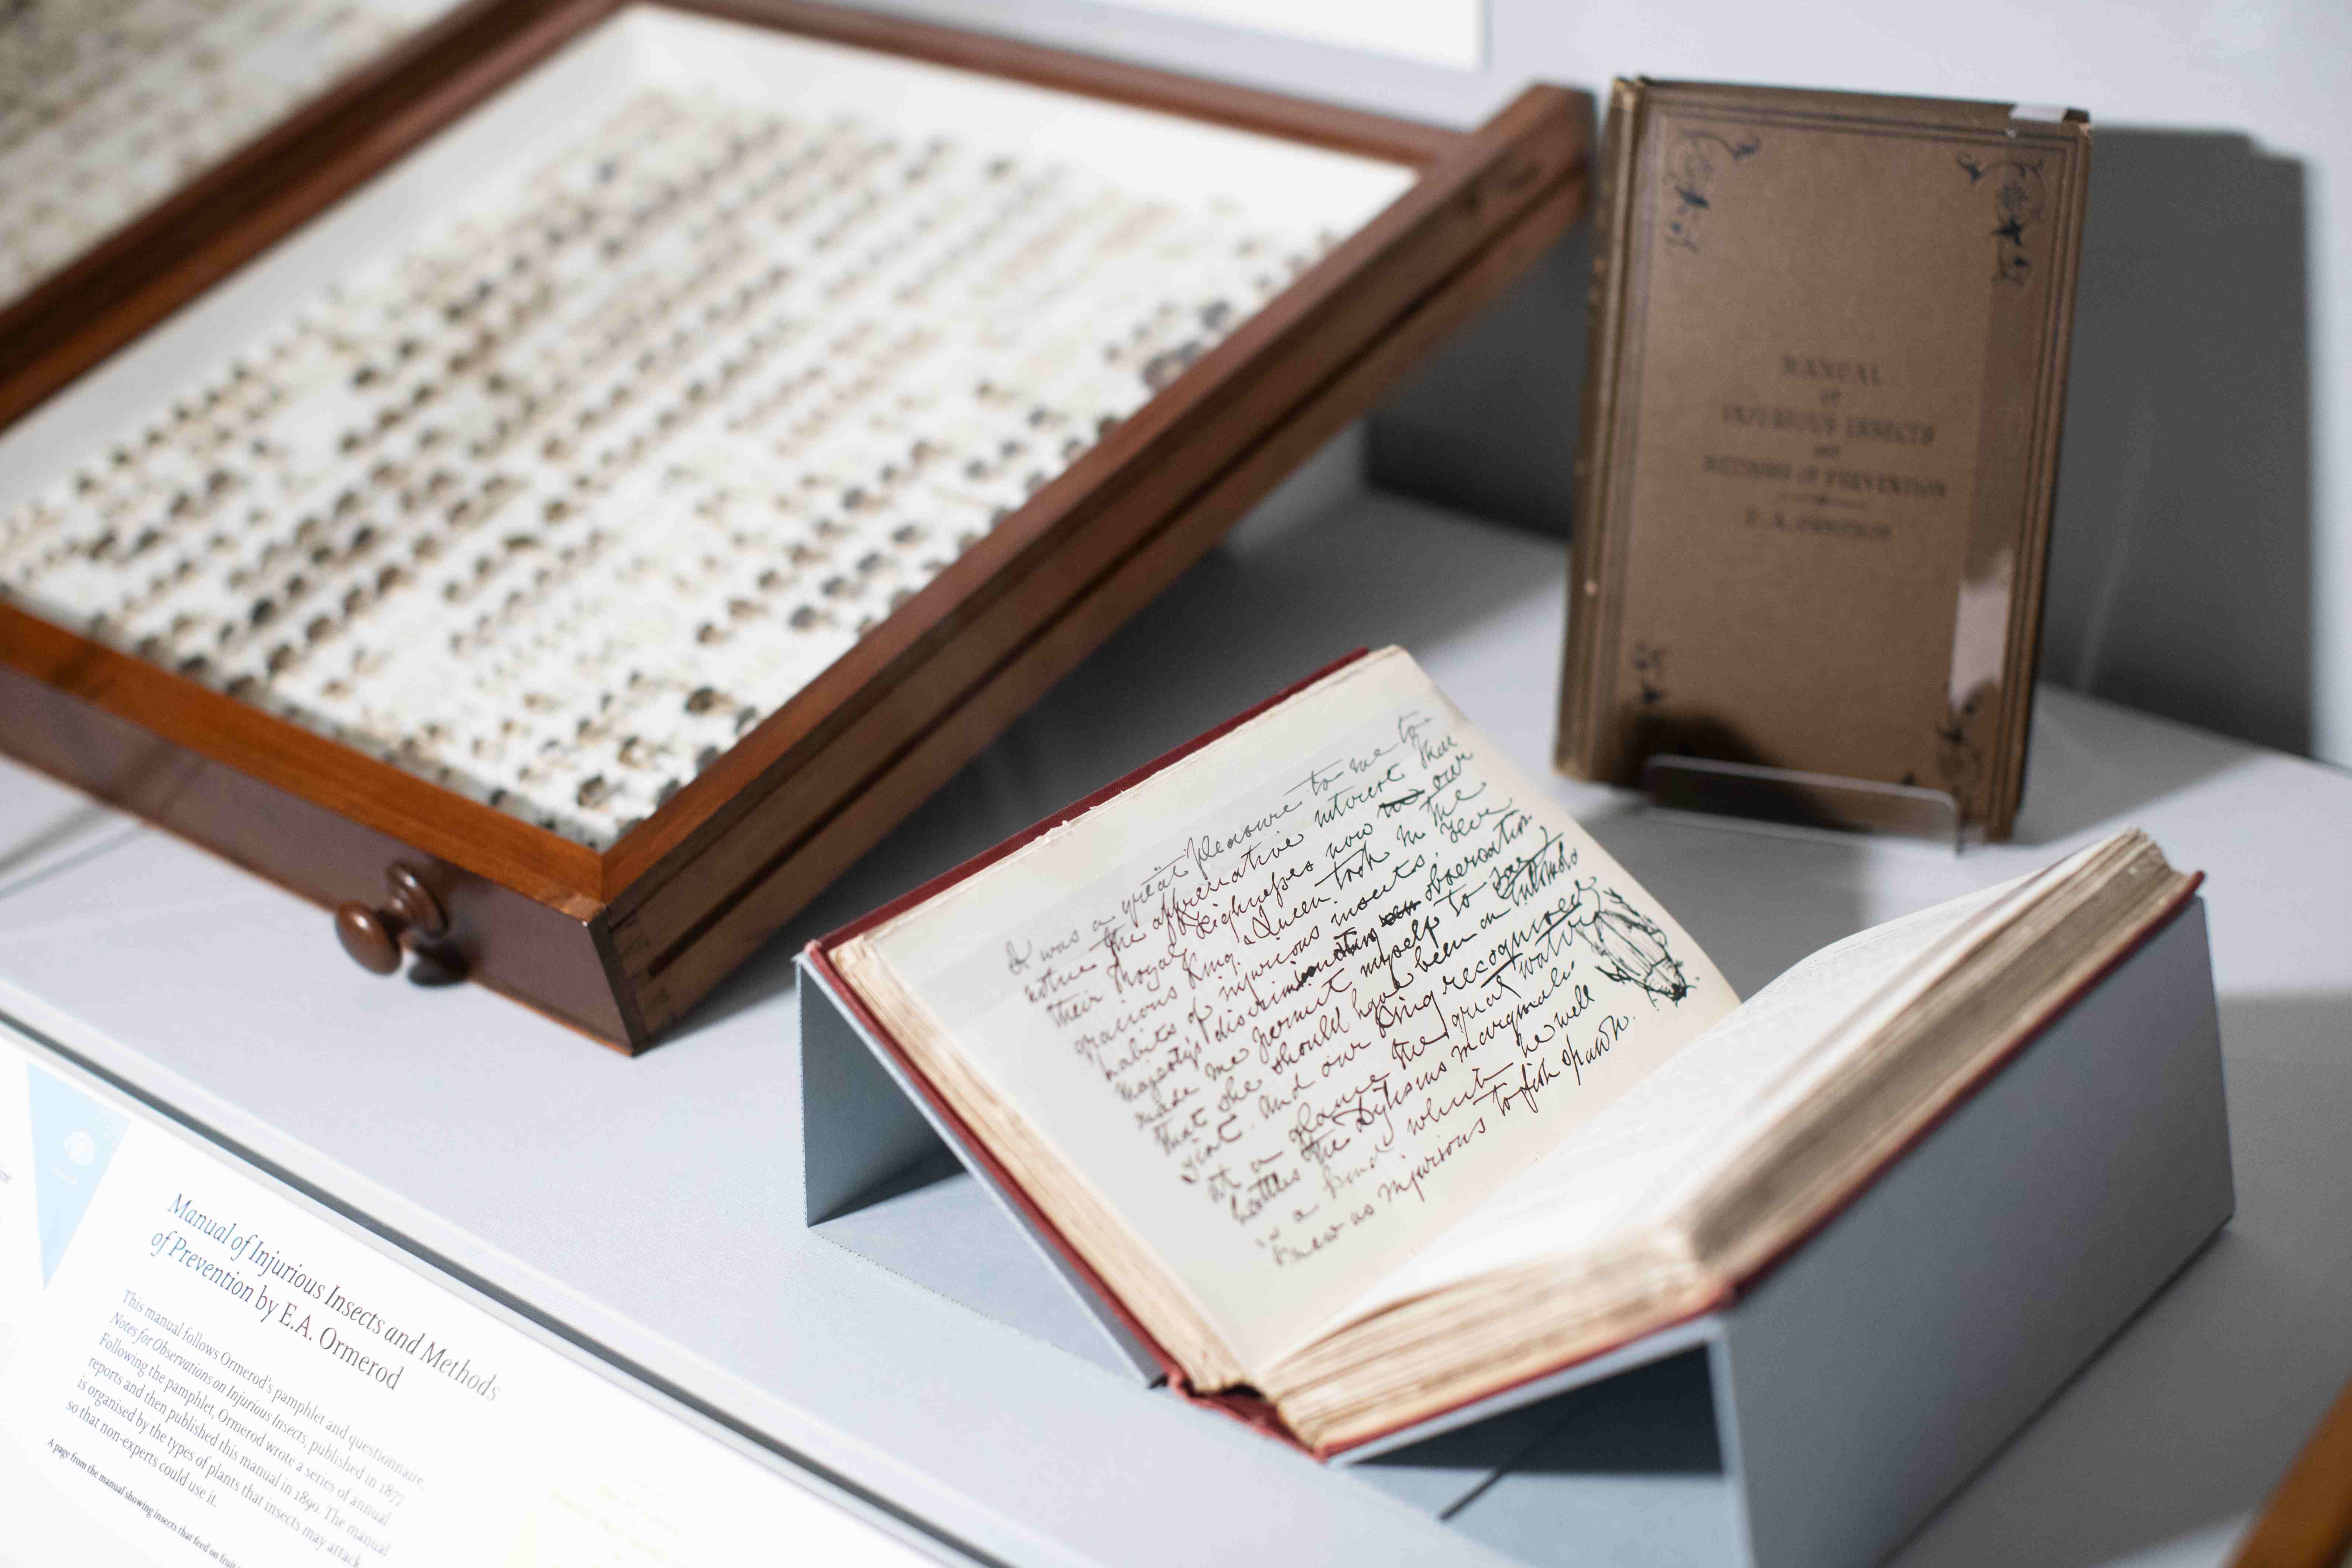 MANUAL
OF
INJURIOUS INSECTS
AND
METHODS OF PREVENTION
E. A. ORMEROD.
It was a great pleasure to me to
notice the appreciative interest that
their Royal Highnesses now our
gracious King & Queen took in the
habits of injurious insects. Her
Majesty's discriminating observation
made me permit myself to say
that she should have been an Entomolo
gist. And our King recognized
at a glance the great water
beetle the Dytiscus marginalis
in a pond which he well
knew as injurious to fish spawn.
Manual of Injurious Insects and Methods
of Prevention by E.A. Ormerod
This manual follows Ormerod's pamphlet and questionnaire,
Notes for Observations on Injurious Insects, published in 1877.
Following the pamphlet, Ormerod wrote a series of annual
reports and then published this manual in 1890. The manual
is organised by the types of plants that insects may attack
so that non-experts could use it.
A page from the manual showing insects that feed on fruit